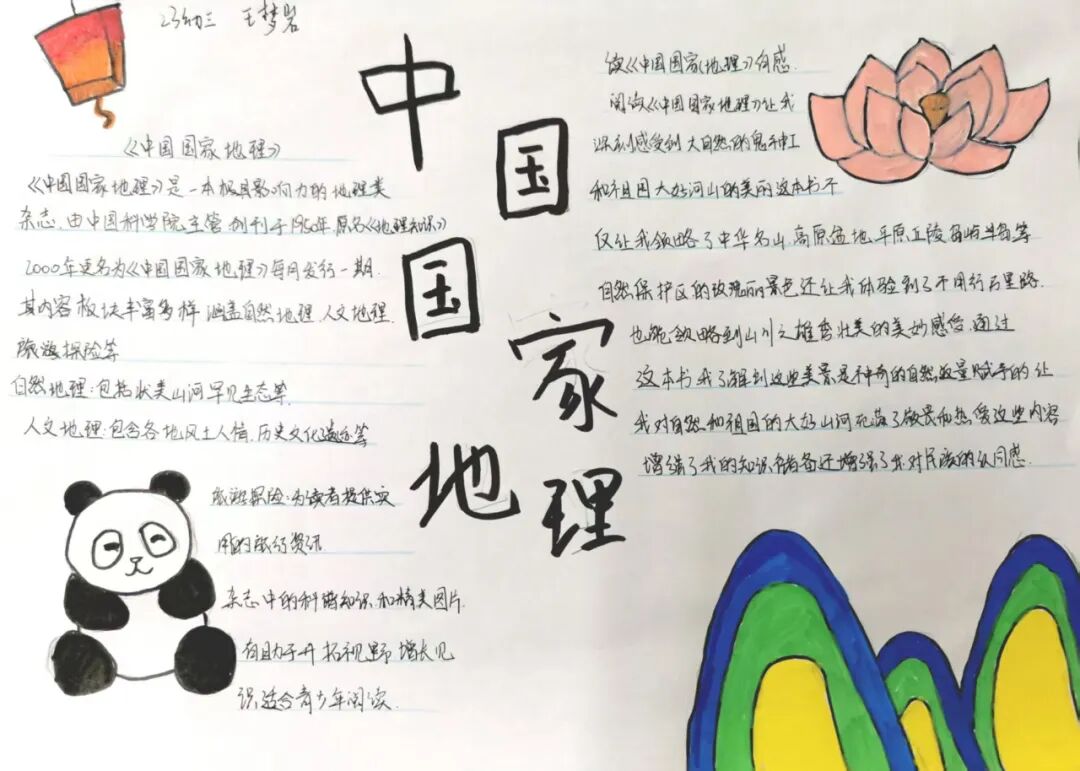 23幼三 王梦岩
中国国家地理
《中国国家地理》
《中国国家地理》是一本极具影响力的地理类
杂志,由中国科学院主管创刊于1950年,原名《地理知识》
2000年更名为《中国国家地理》每月发行一期.
其内容板块丰富多样 涵盖自然地理.人文地理.
旅游探险等
自然地理:包括
人文地理:包含各地风土人情,历史文化遗迹等
旅游探险:为读者提供实
用的旅行资讯
杂志中的科普知识和精美图片.
有助于开拓视野增长见
识适合青少年阅读.
读《中国国家地理》有感.
阅读《中国国家地理》让我
深刻感受到大自然的鬼斧神工
和祖国大好河山的美丽这本书不
仅让我领略了中华名山,高原盆地,平原丘陵 等
自然保护区的 丽景色还让我体验到了不用行万里路.
也能领略到山川之雄奇壮美的美妙感受.通过
这本书 我了解到这些美景是神奇的自然 赋予的 让
我对自然和祖国的大好山河充满了敬畏和热爱这些内容
增强了我的知识储备还增强了我对民族的认同感.